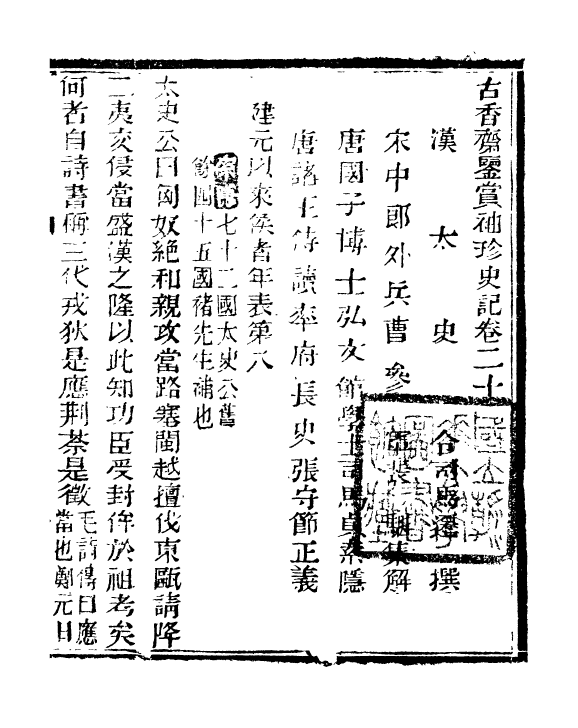 古香齋鑒賞袖珍史記卷二十
漢太史令司馬遷撰
宋中郎外兵曹參軍裴駰集解
唐國子博士弘文館學士司馬貞索隱
唐諸王侍讀率府長史張守節正義
建元以來侯者年表第八
索隱七十二國太史公舊
餘四十五國褚先生補也
太史公曰匈奴絶和親攻當路塞閩越擅伐東甌請降
二夷交侵當盛漢之隆以此知功臣受封侔於祖考矣
何者自詩書稱三代戎狄是應荆荼是徵
毛詩傳曰應
當也鄭元曰